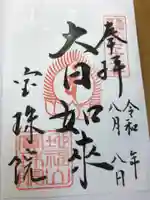 奉拝
令和 年
八月八日
大日如来
宝珠院